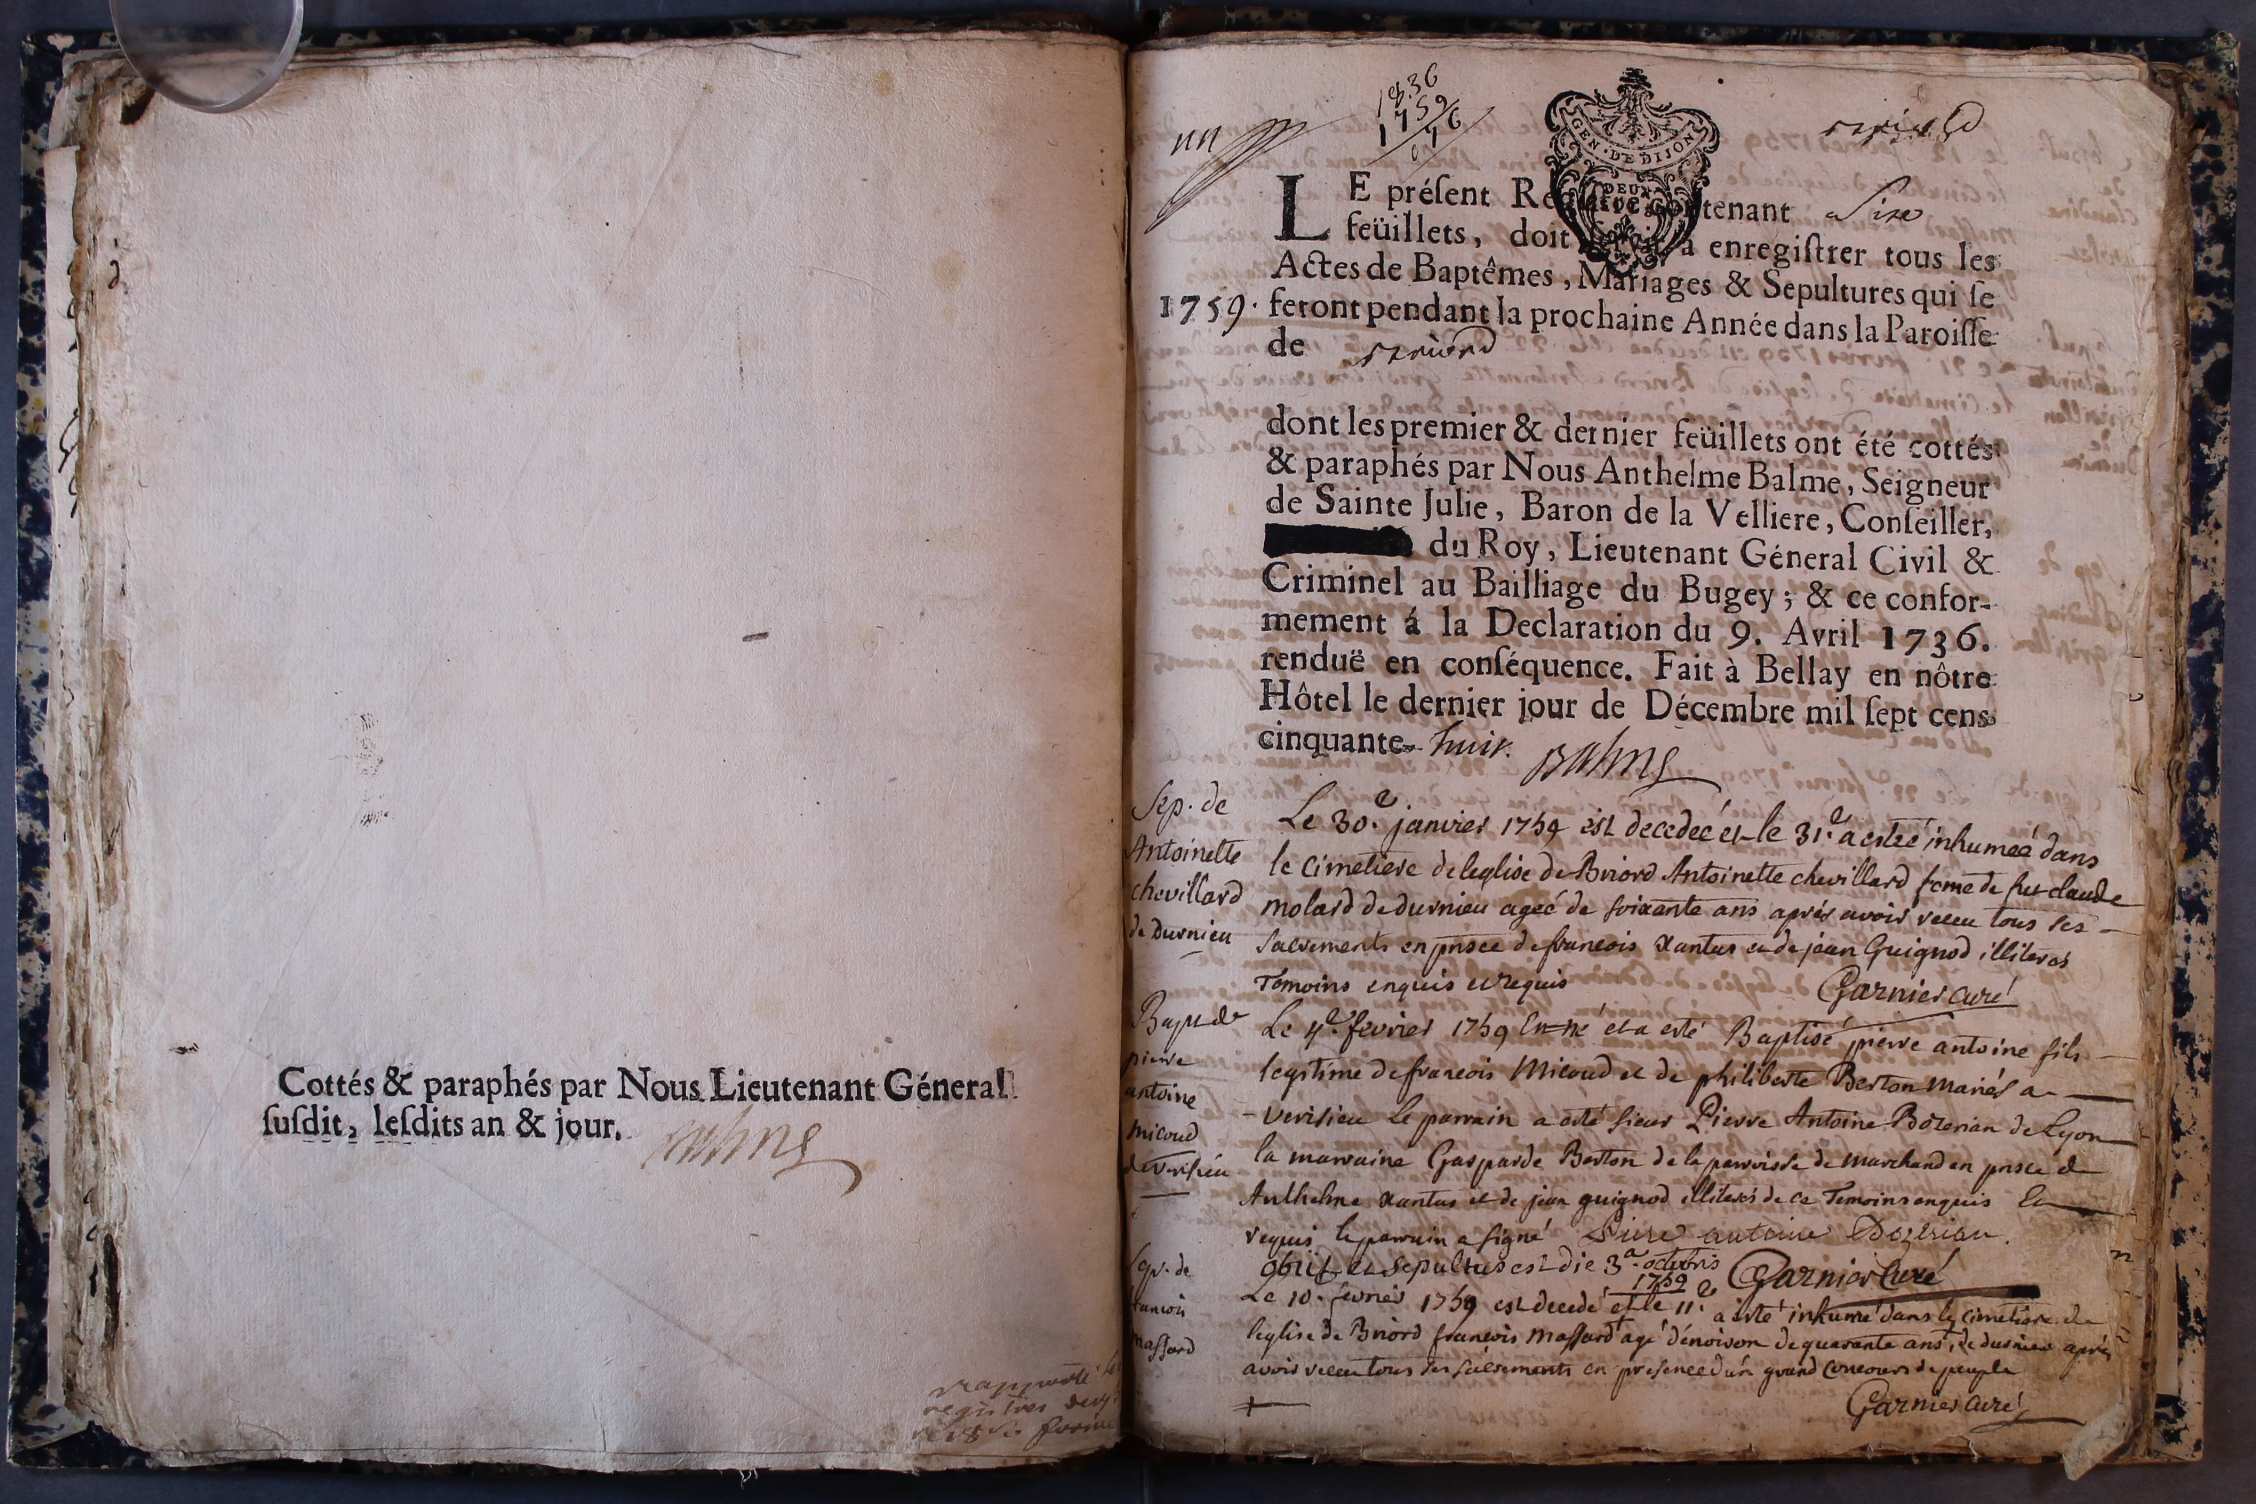 Cottés & paraphés par Nous Lieutenant Géneral
ſuſdit, leſdits an & jour.
Balme
rapporté
registres
1836
1759
76
GEN · DE DIJON
DEUX
LE préſent Regiſtre contenant Size
feüillets, doit ſervir à enregiſtrer tous les
Actes de Baptêmes, Mariages & Sepultures qui ſe
1759. feront pendant la prochaine Année dans la Paroiſſe
de Briord
dont les premier & dernier feüillets ont été cottés
& paraphés par Nous Anthelme Balme, Seigneur
de Sainte Julie, Baron de la Velliere, Conſeiller,
du Roy, Lieutenant Géneral Civil &
Criminel au Bailliage du Bugey; & ce confor-
mement á la Declaration du 9. Avril 1736.
renduë en conſéquence. Fait à Bellay en nôtre
Hôtel le dernier jour de Décembre mil ſept cens
cinquante- huit. Balme
Sep. de
Antoinette
chevillard
de Durnieu
Le 30.e janvier 1759 est decedeé et le 31.e a estée inhumeé dans
le cimetiere de leglise de Briord Antoinette chevillard feme de feu claude
molard de durnieu ageé de soixante ans aprés avoir receu tous ses
sacrements en prsce de francois Xantus et de jean Guignod illiteres
Temoins enquis et requis Garnier curé
Bapt de
pierre
antoine
micoud
de verisieu
Le 4.e fevrier 1759 est né et a esté Baptisé pierre antoine fils
legitime de francois Micoud et de philiberte Berton mariés a
verisieu le parrain a esté sieur Pierre Antoine Bozerian de Lyon
la marraine Gasparde Berton de la parroisse de Marchand en prsce de
Anthelme Xantus et de jean guignod illiterés de ce Temoins enquis et
requis le parrain a signé Pierre antoine Bozerian.
obiit et sepultus est die 3.a octobris
1759 Garnier Curé
Sep. de
francois
massard
Le 10.e fevrier 1759 est decedé et le 11.e a esté inhumé dans le cimetiere de
leglise de Briord francois Massard agé d'environ de quarante ans, de durnieu aprés
avoir receu tous ses sacrements en presence d'un grand concours de peuple
Garnier Curé